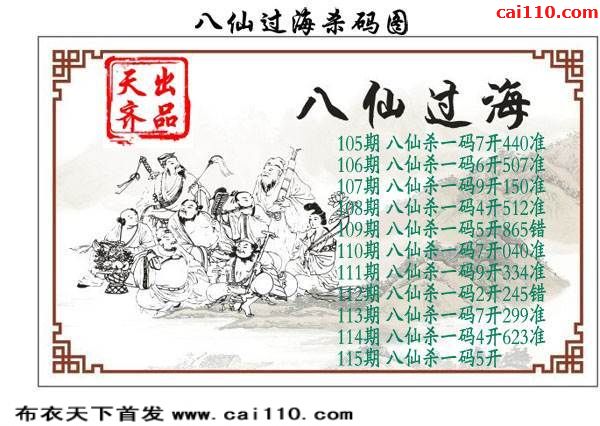 八仙过海杀码图
cai110.com
天齐出品
八仙过海
105期 八仙杀一码7开440准
106期 八仙杀一码6开507准
107期 八仙杀一码9开150准
108期 八仙杀一码4开512准
109期 八仙杀一码5开865错
110期 八仙杀一码7开040准
111期 八仙杀一码9开334准
112期 八仙杀一码2开245错
113期 八仙杀一码7开299准
114期 八仙杀一码4开623准
115期 八仙杀一码5开
布衣天下首发 www.cai110.com